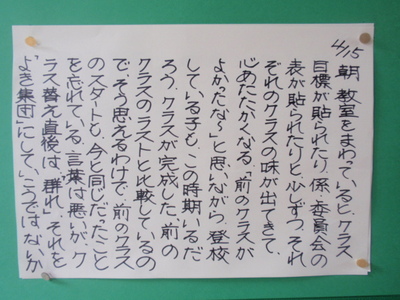 4/15
朝、教室をまわっていると、クラス
目標が貼られたり、係、委員会の
表が貼られたりと、少しずつ、それ
ぞれのクラスの味が出てきて、
心あたたかくなる。「前のクラスが
よかったな～」と思いながら、登校
している子も、この時期いるだ
ろう。クラスが完成した、前の
クラスのラストと比較しているの
で、そう思えるわけで、前のクラス
のスタートも、今と同じだったこと
を忘れている。言葉は悪いが、ク
ラス替え直後は「群れ」。それを
「よき集団」にしていこうではないか